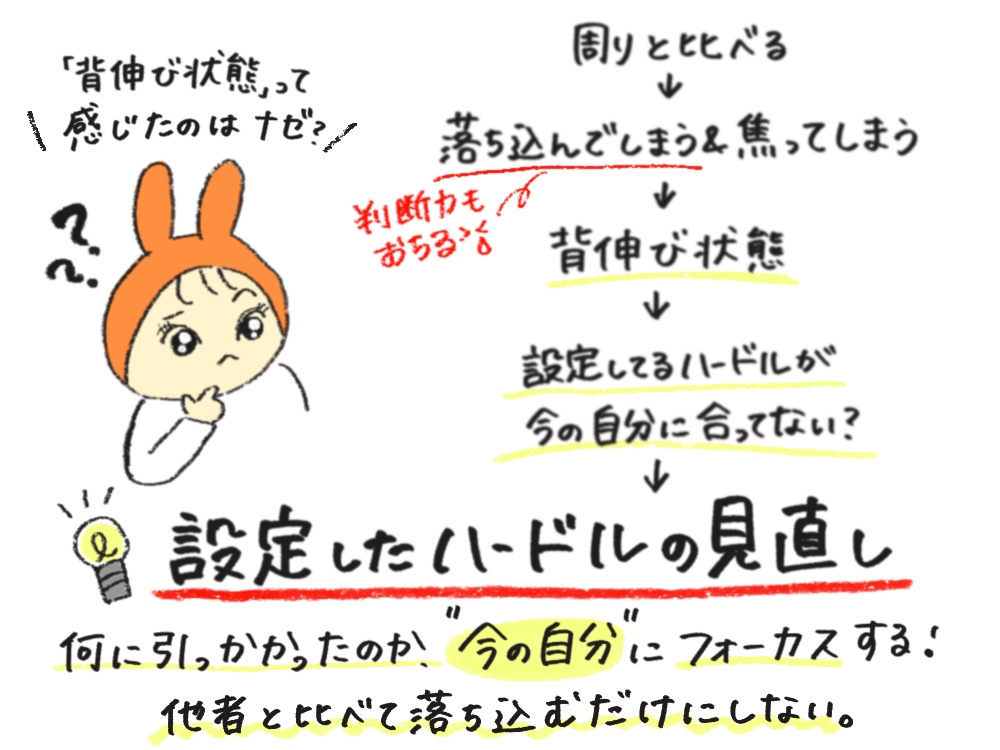 「背伸び状態」って
感じたのはナゼ?
??
周りと比べる
↓
落ち込んでしまう&焦ってしまう
判断力も
おちる
↓
背伸び状態
↓
設定してるハードルが
今の自分に合ってない?
↓
設定したハードルの見直し
何に引っかかったのか、"今の自分"にフォーカスする!
他者と比べて落ち込むだけにしない。